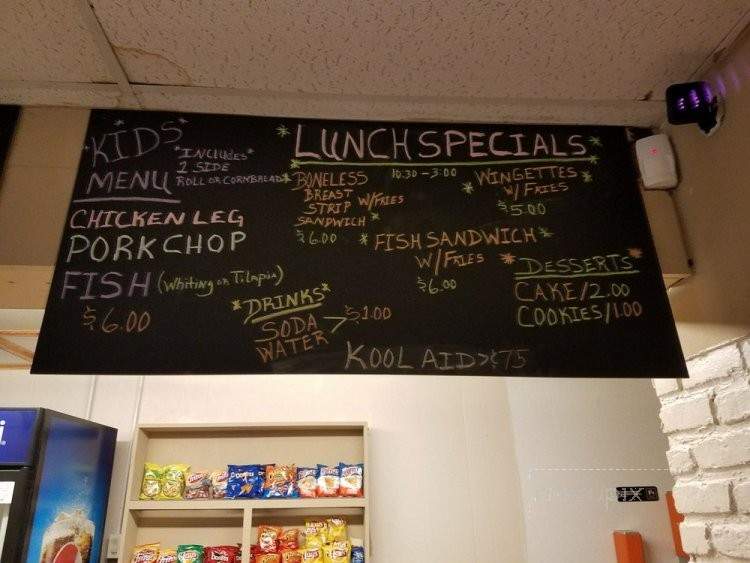 *KIDS*
MENU
*INCLUDES*
2 SIDE
ROLL OR CORNBREAD*
CHICKEN LEG
PORK CHOP
FISH (Whiting or Tilapia)
$6.00
*LUNCH SPECIALS*
10:30-3:00
BONELESS
BREAST
STRIP W/FRIES
SANDWICH*
$6.00
*WINGETTES*
W/ FRIES
$5.00
*FISH SANDWICH*
W/FRIES
$6.00
*DESSERTS*
CAKE/2.00
COOKIES/1.00
*DRINKS*
SODA
WATER
>$1.00
KOOL AID>¢75